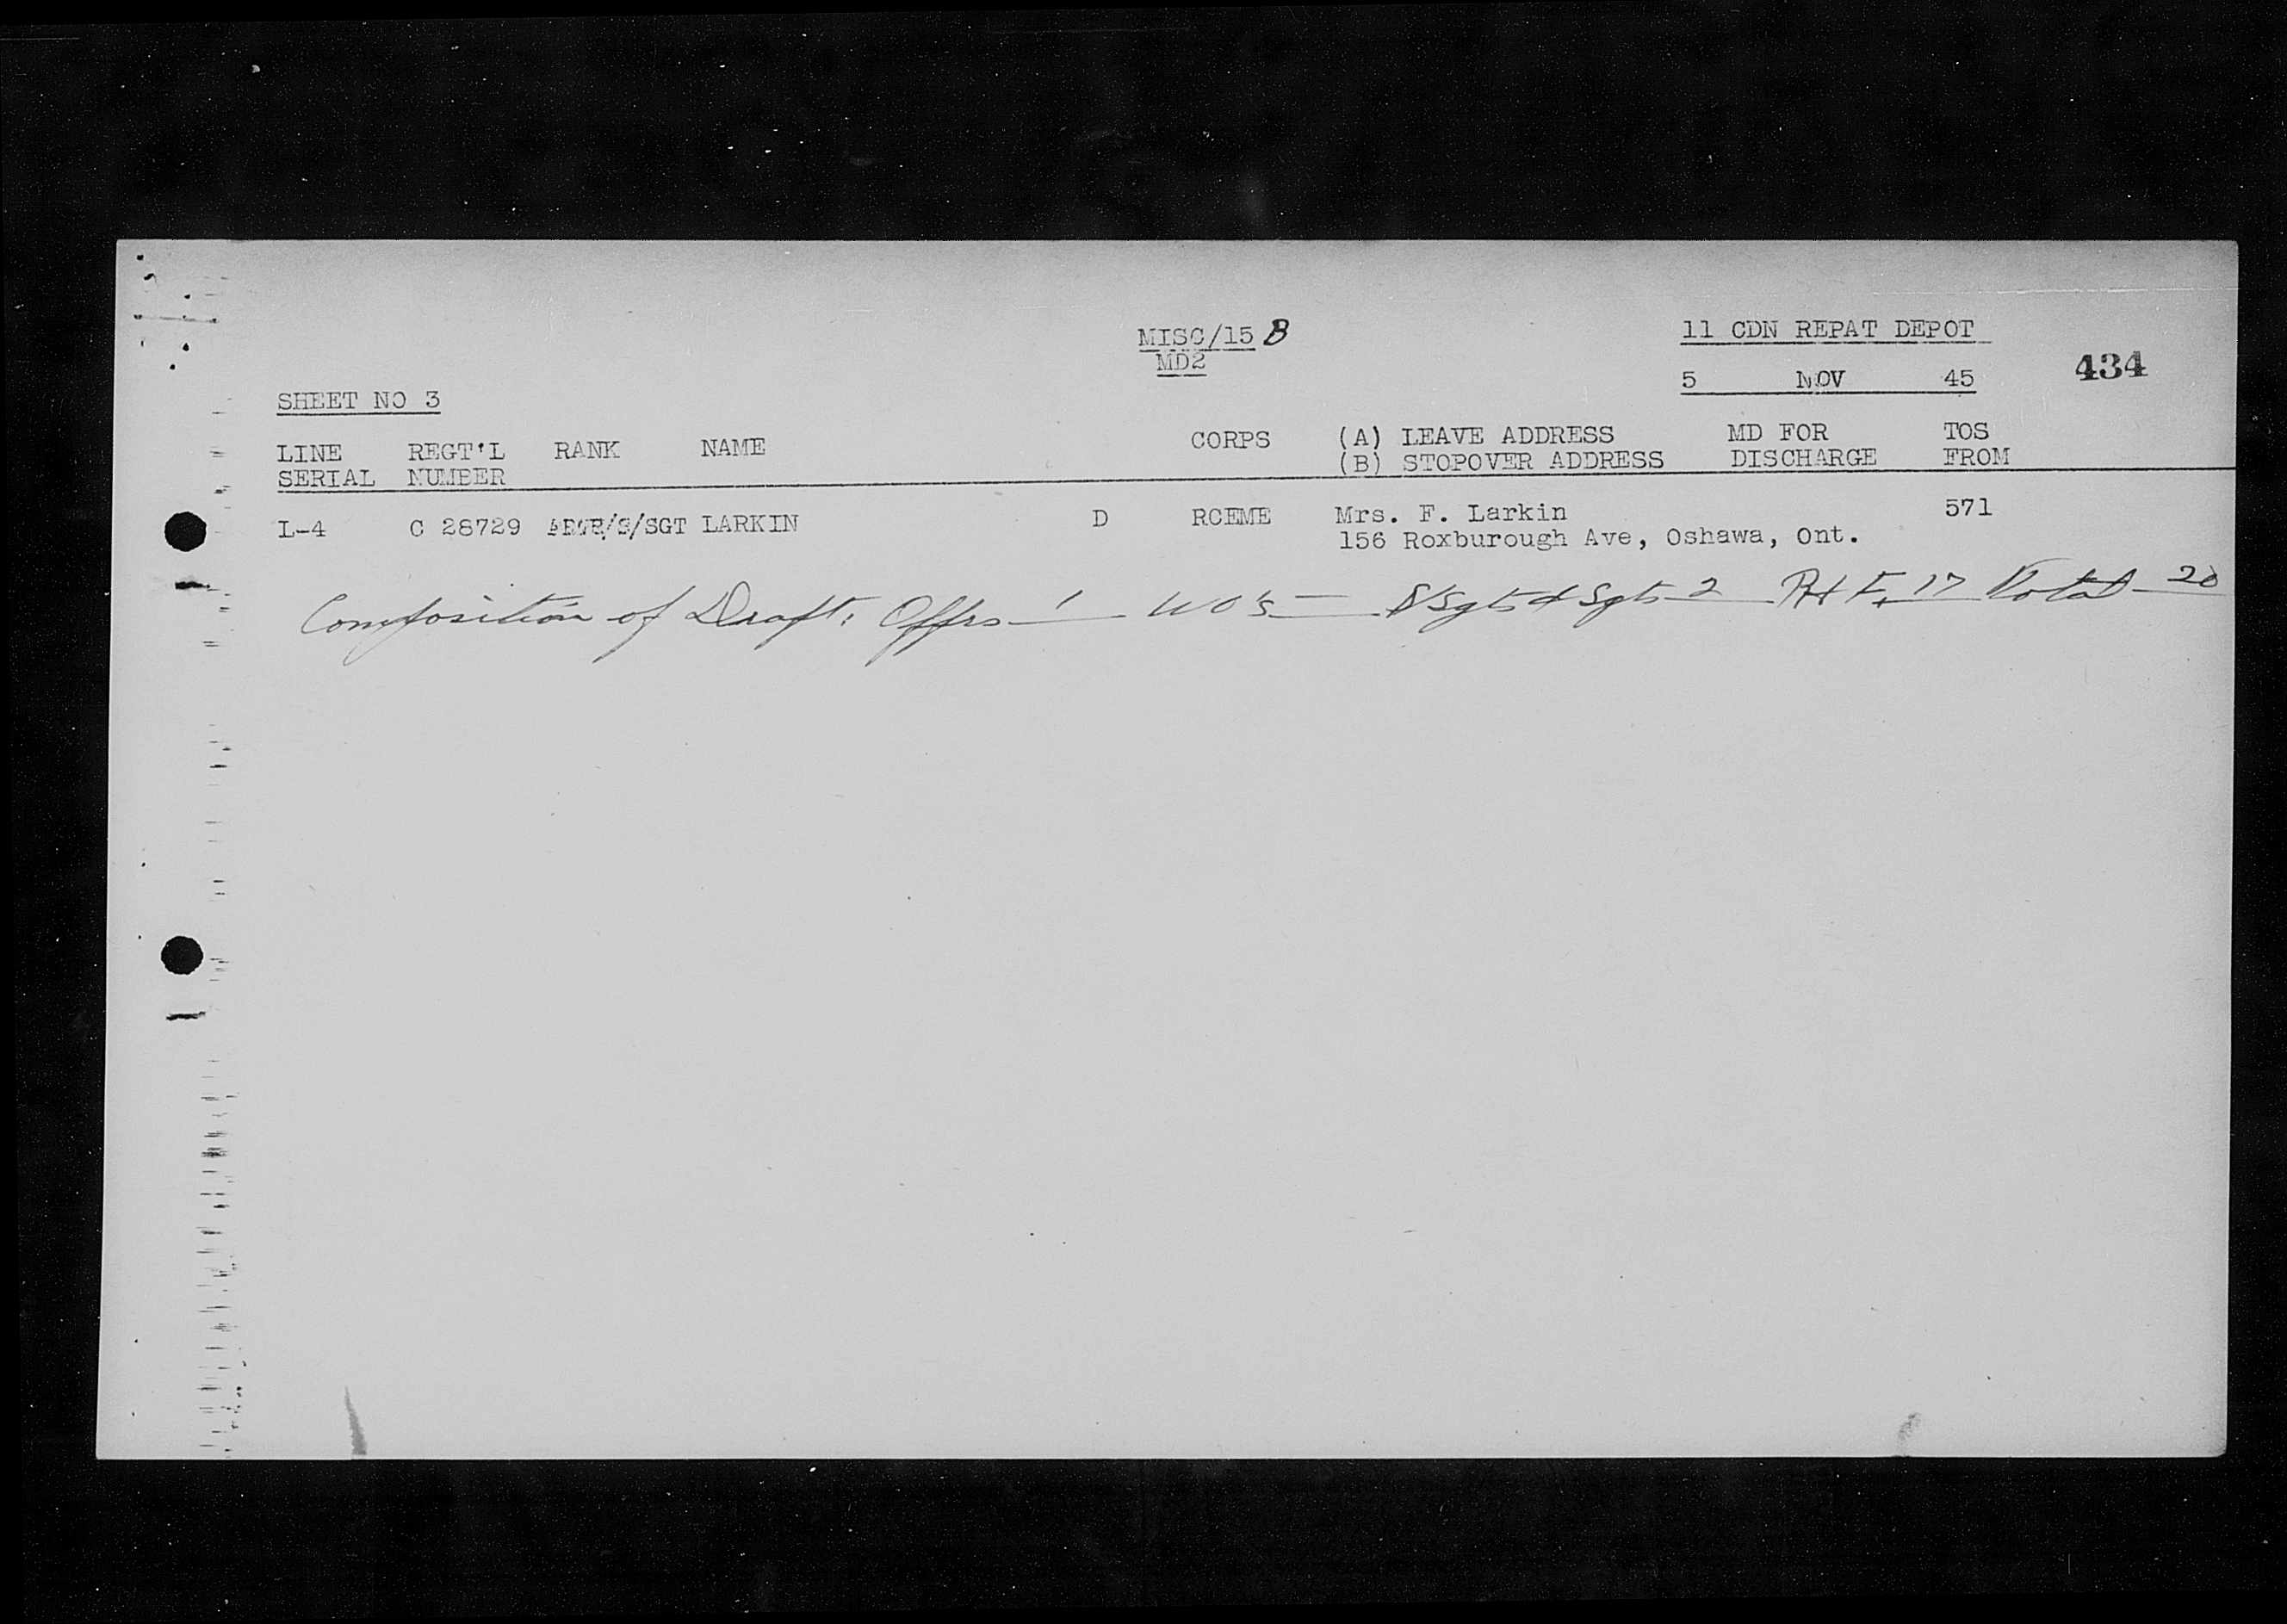 MISC/15 B
MD2
11 CDN REPAT DEPOT
5 NOV 45
434
SHEET NO 3
LINE SERIAL REGT'L NUMBER RANK NAME CORPS (A) LEAVE ADDRESS (B) STOPOVER ADDRESS MD FOR DISCHARGE TOS FROM
L-4 C 28729 /S/SGT LARKIN D RCEME Mrs. F. Larkin 571
156 Roxburough Ave, Oshawa, Ont.
Composition of Draft: Offrs 1 WO's — S/Sgts & Sgts 2 R & F, 17 Total 20